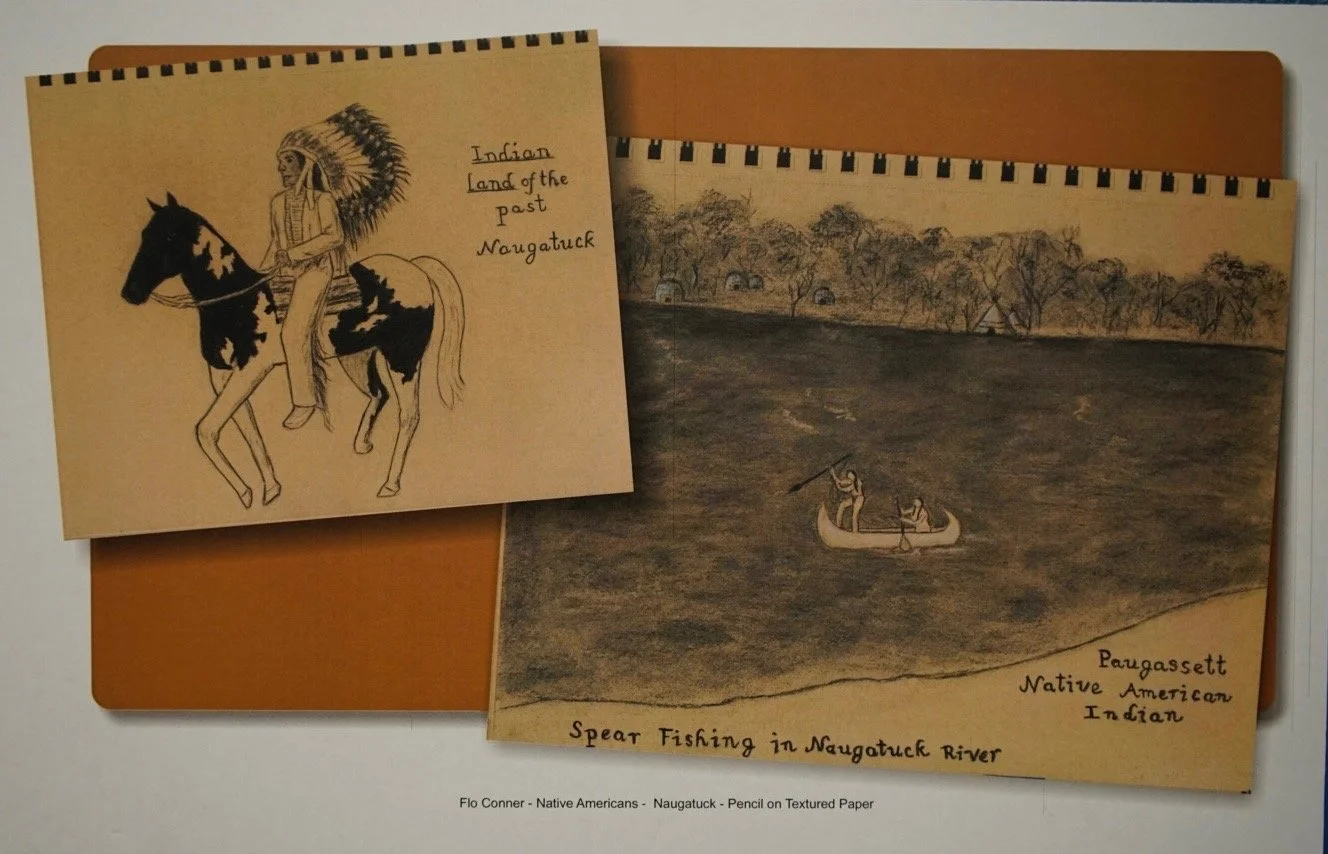 Indian
Land of the
past
Naugatuck
Paugassett
Native American
Indian
Spear Fishing in Naugatuck River
Flo Conner - Native Americans - Naugatuck - Pencil on Textured Paper